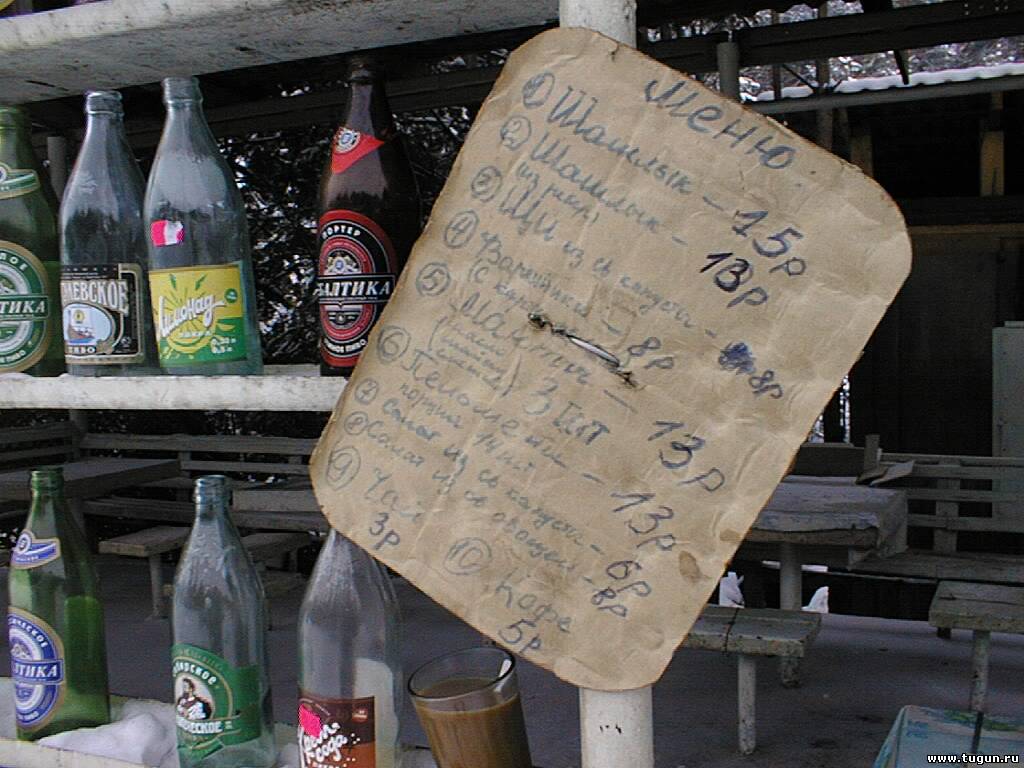 Меню
① Шашлык - 15р
② Шашлык - 13р
③ Щи из св капусты - 8р
④ Вареники 8р
(с карт
⑤ Манты - 13р
3 шт
⑥ Пельмени - 13р
порция 14шт
⑦ Салат из св капусты - 6р
⑧ Салат из св овощей - 8р
⑨ Чай
3р
⑩ Кофе
5р
ПОРТЕР
БАЛТИКА
ТИКА
ЛЕВСКОЕ
ПИВО
Лимонад
0,5 л
АЛТИКА
www.tugun.ru